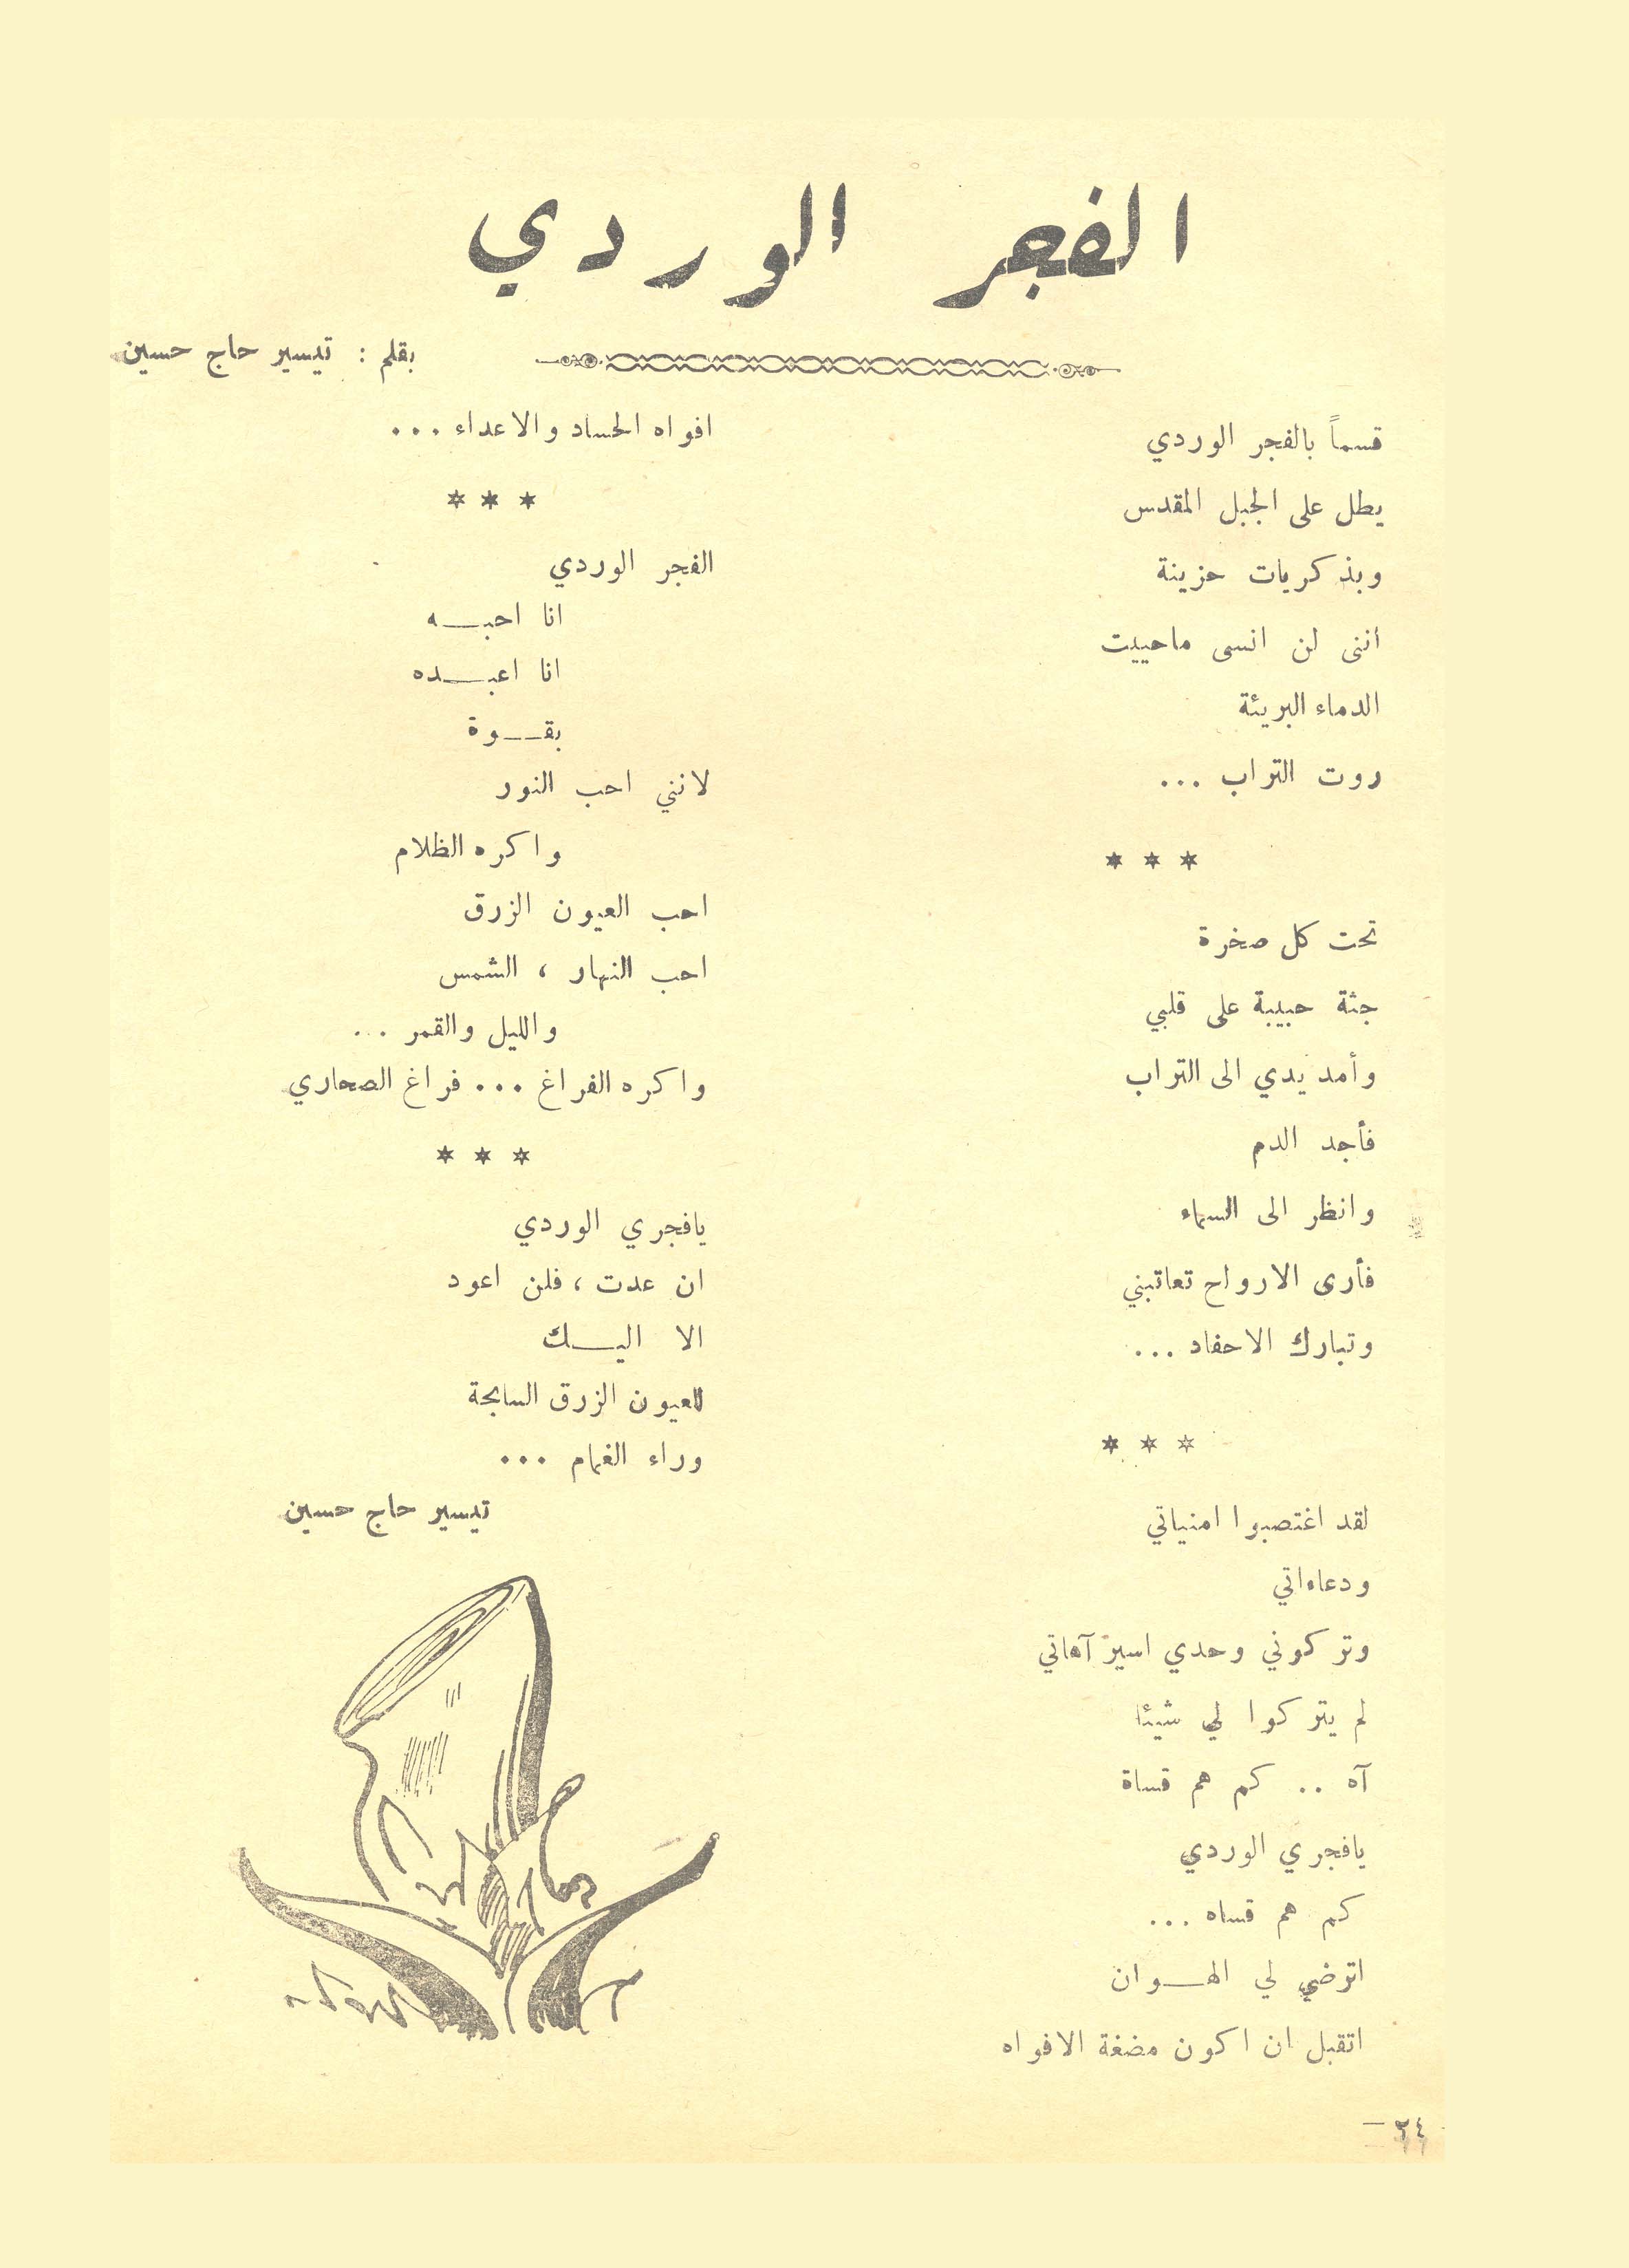 الفجر الوردي
بقلم : تيسير حاج حسين
قسماً بالفجر الوردي
يطل على الجبل المقدس
وبذكريات حزينة
أنني لن انسى ماحييت
الدماء البريئة
روت التراب ...
* * *
تحت كل صخرة
جثة حبيبة على قلبي
وأمد يدي الى التراب
فأجد الدم
وانظر الى السماء
فأرى الارواح تعاتبني
وتبارك الاحفاد ...
* * *
لقد اغتصبوا امنياتي
ودعاءاتي
وتركوني وحدي اسير آهاتي
لم يتركوا لي شيئا
آه .. كم هم قساة
يافجري الوردي
كم هم قساه ...
اترضي لي الهـــوان
اتقبل ان اكون مضغة الافواه
افواه الحساد والاعداء ...
* * *
الفجر الوردي
انا احبـــه
انا اعبـــده
بقـــوة
لانني احب النور
واكره الظلام
احب العيون الزرق
احب النهار ، الشمس
والليل والقمر ...
واكره الفراغ ... فراغ الصحاري
* * *
يافجري الوردي
ان عدت ، فلن اعود
الا اليـــك
للعيون الزرق السابحة
وراء الغمام ...
تيسير حاج حسين
٢٤ —